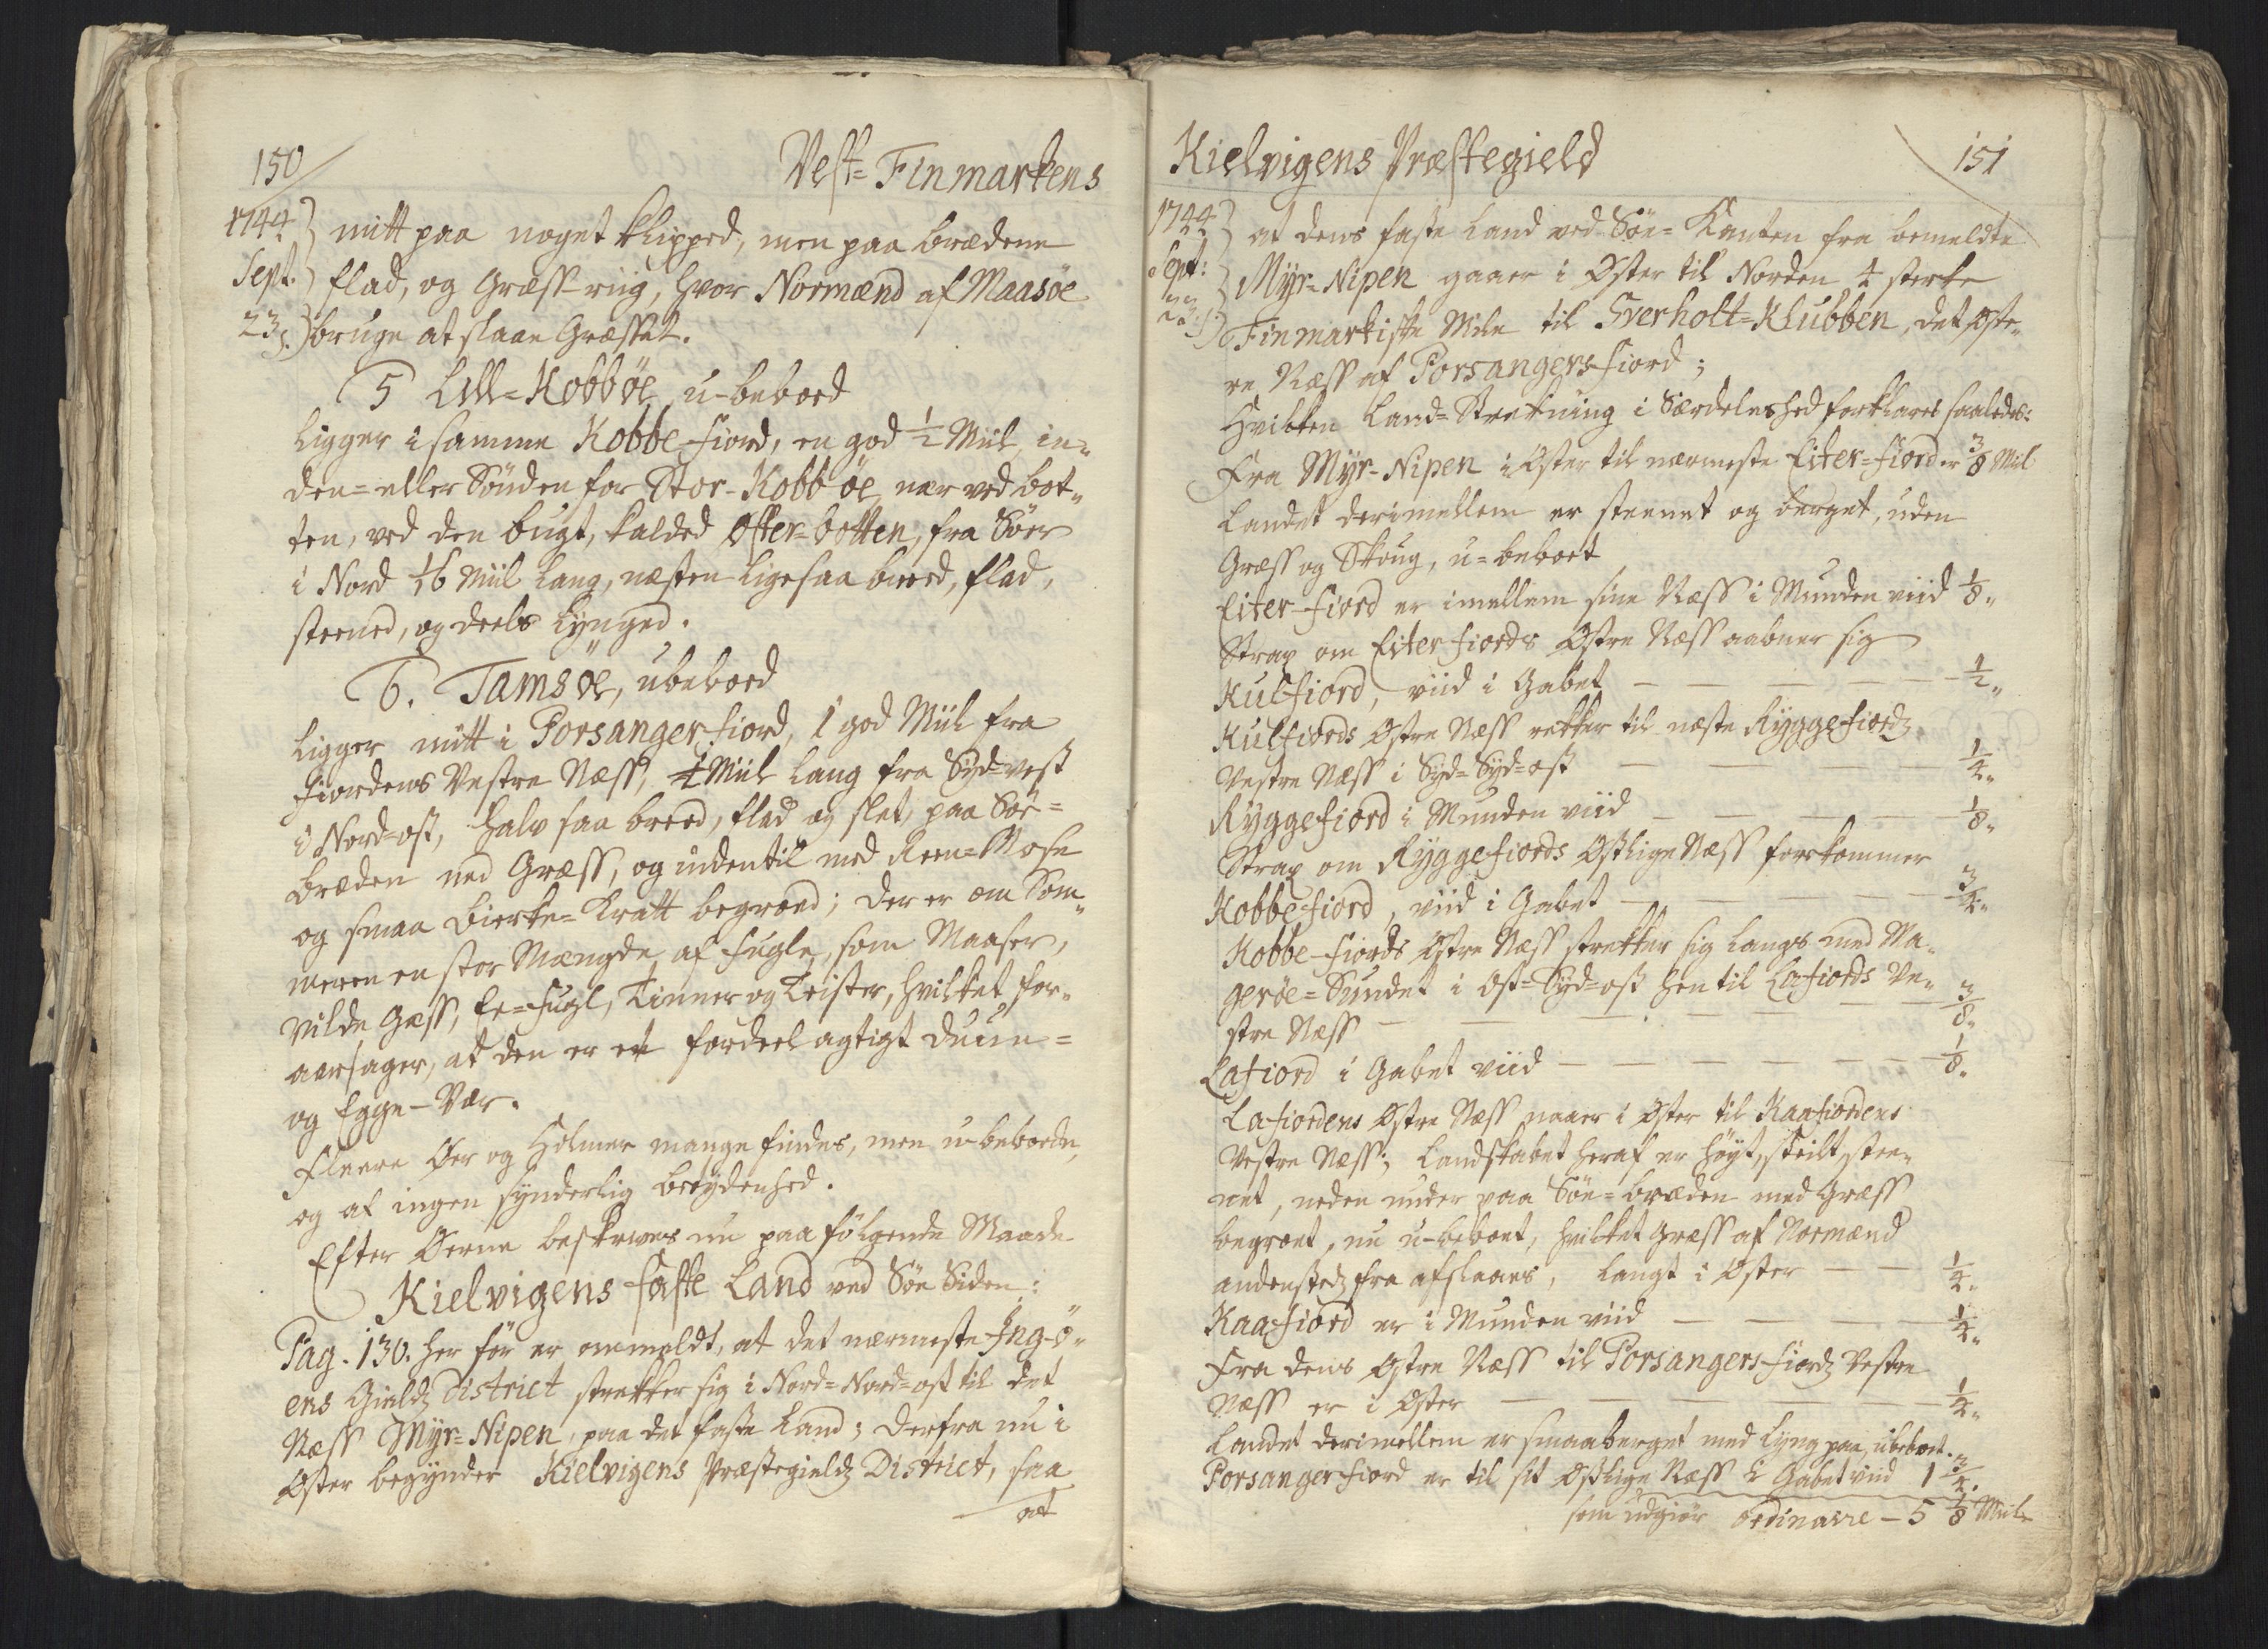 150
Vest-Finmarkens
1744. mitt paa noget klipped, men paa brædene
Sept. flad, og Græss-riig, hvor Normænd af Maasøe
23. bruge at slaae Græsset.
5 Lill-Kobbøe u-beboed
ligger i samme Kobbe-fiord, en god 1/2 Miil in-
den- eller Sønden for Stor-Kobbøe nær ved bot-
ten, ved den bugt, kalded Øster-botten, fra Søer
i Nord 1/16 Miil lang, næsten ligesaa breed, flad,
steened, og deels lynged.
6. Tamsøe, ubeboed
ligger mitt i Porsangerfiord, 1 god Miil fra
fiordens Vestre Næss, 1/4 Miil lang fra Syd-vest
i Nord-ost, halv saa breed, flad og slet, paa Søe-
bræden med Græss, og indentil med Reen-Mose
og smaa bierke-Kratt begroed; der er om Som-
meren en stor Mængde af fugle, som Maaser,
vilde Gæss, Ee-fugl, Tinner og Teister, hvilket for-
aarsager, at den er et fordeelagtigt Duun-
og Egge-Vær.
Fleere Øer og Holmer mange findes, men u-beboede,
og af ingen synderlig betydenhed.
Efter Øerne beskrives nu paa følgende Maade
Kielvigens faste Land ved Søe Siden:
Pag. 130. her før er ommeldt, at det nærmeste Ing-ø-
ens Gields District strekker sig i Nord-Nord-ost til det
Næss Myr-Nipen, paa det faste Land; derfra nu i
Øster begynder Kielvigens Præstegields District, saa
at
Kielvigens Præstegield
151
1744 at dens faste Land ved Søe-Kanten fra bemeldte
Sept: Myr-Nipen gaaer i Øster til Norden 4 sterke
23. Finmarkiske Mile til Sverholt-Klubben, det Øste-
re Næss af Porsangersfiord;
Hvilken Land-Strekning i Særdeleshed forklares saaledes:
Fra Myr-Nipen i Øster til nærmeste Eiter-fiord er 3/8 Mil
Landet derimellem er steenet og berget, uden
Græss og Skoug, u-beboet
Eiter-fiord er imellem sine Næss i Munden viid 1/8.
Strax om Eiterfiords Østre Næss aabner sig
Kulfiord, viid i Gabet — — — — 1/2.
Kulfiords Østre Næss rekker til næste Ryggefiords
Vestre Næss i Syd-Syd-ost — — — 1/4.
Ryggefiord i Munden viid — — — 1/8.
Strax om Ryggefiords Østlige Næss forekommer
Kobbefiord, viid i Gabet — — — 3/4.
Kobbe-fiords Østre Næss strekker sig langs med Ma-
gerøe-Sundet i Ost-Syd-ost hen til Lafiords Ve-
stre Næss — — — — — 3/8.
Lafiord i Gabet viid — — — — 1/8.
Lafiordens Østre Næss naaer i Øster til Kaafiordens
Vestre Næss; Landskabet heraf er høyt, steilt, stee-
net, neden under paa Søe-bræden med Græss
begroet, nu u-beboet, hvilket Græss af Normænd
andensteds fra afslaaes, langt i Øster — — 1/4.
Kaafiord er i Munden viid — — — 1/4.
Fra dens Østre Næss til Porsangers-fiords Vestre
Næss er i Øster — — — — 1/4.
Landet derimellem er smaaberget med lyng paa, ubeboet.
Porsangerfiord er til sit Østlige Næss i Gabet viid 1 3/4.
som udgiør ordinaire - 5 1/8 Miile